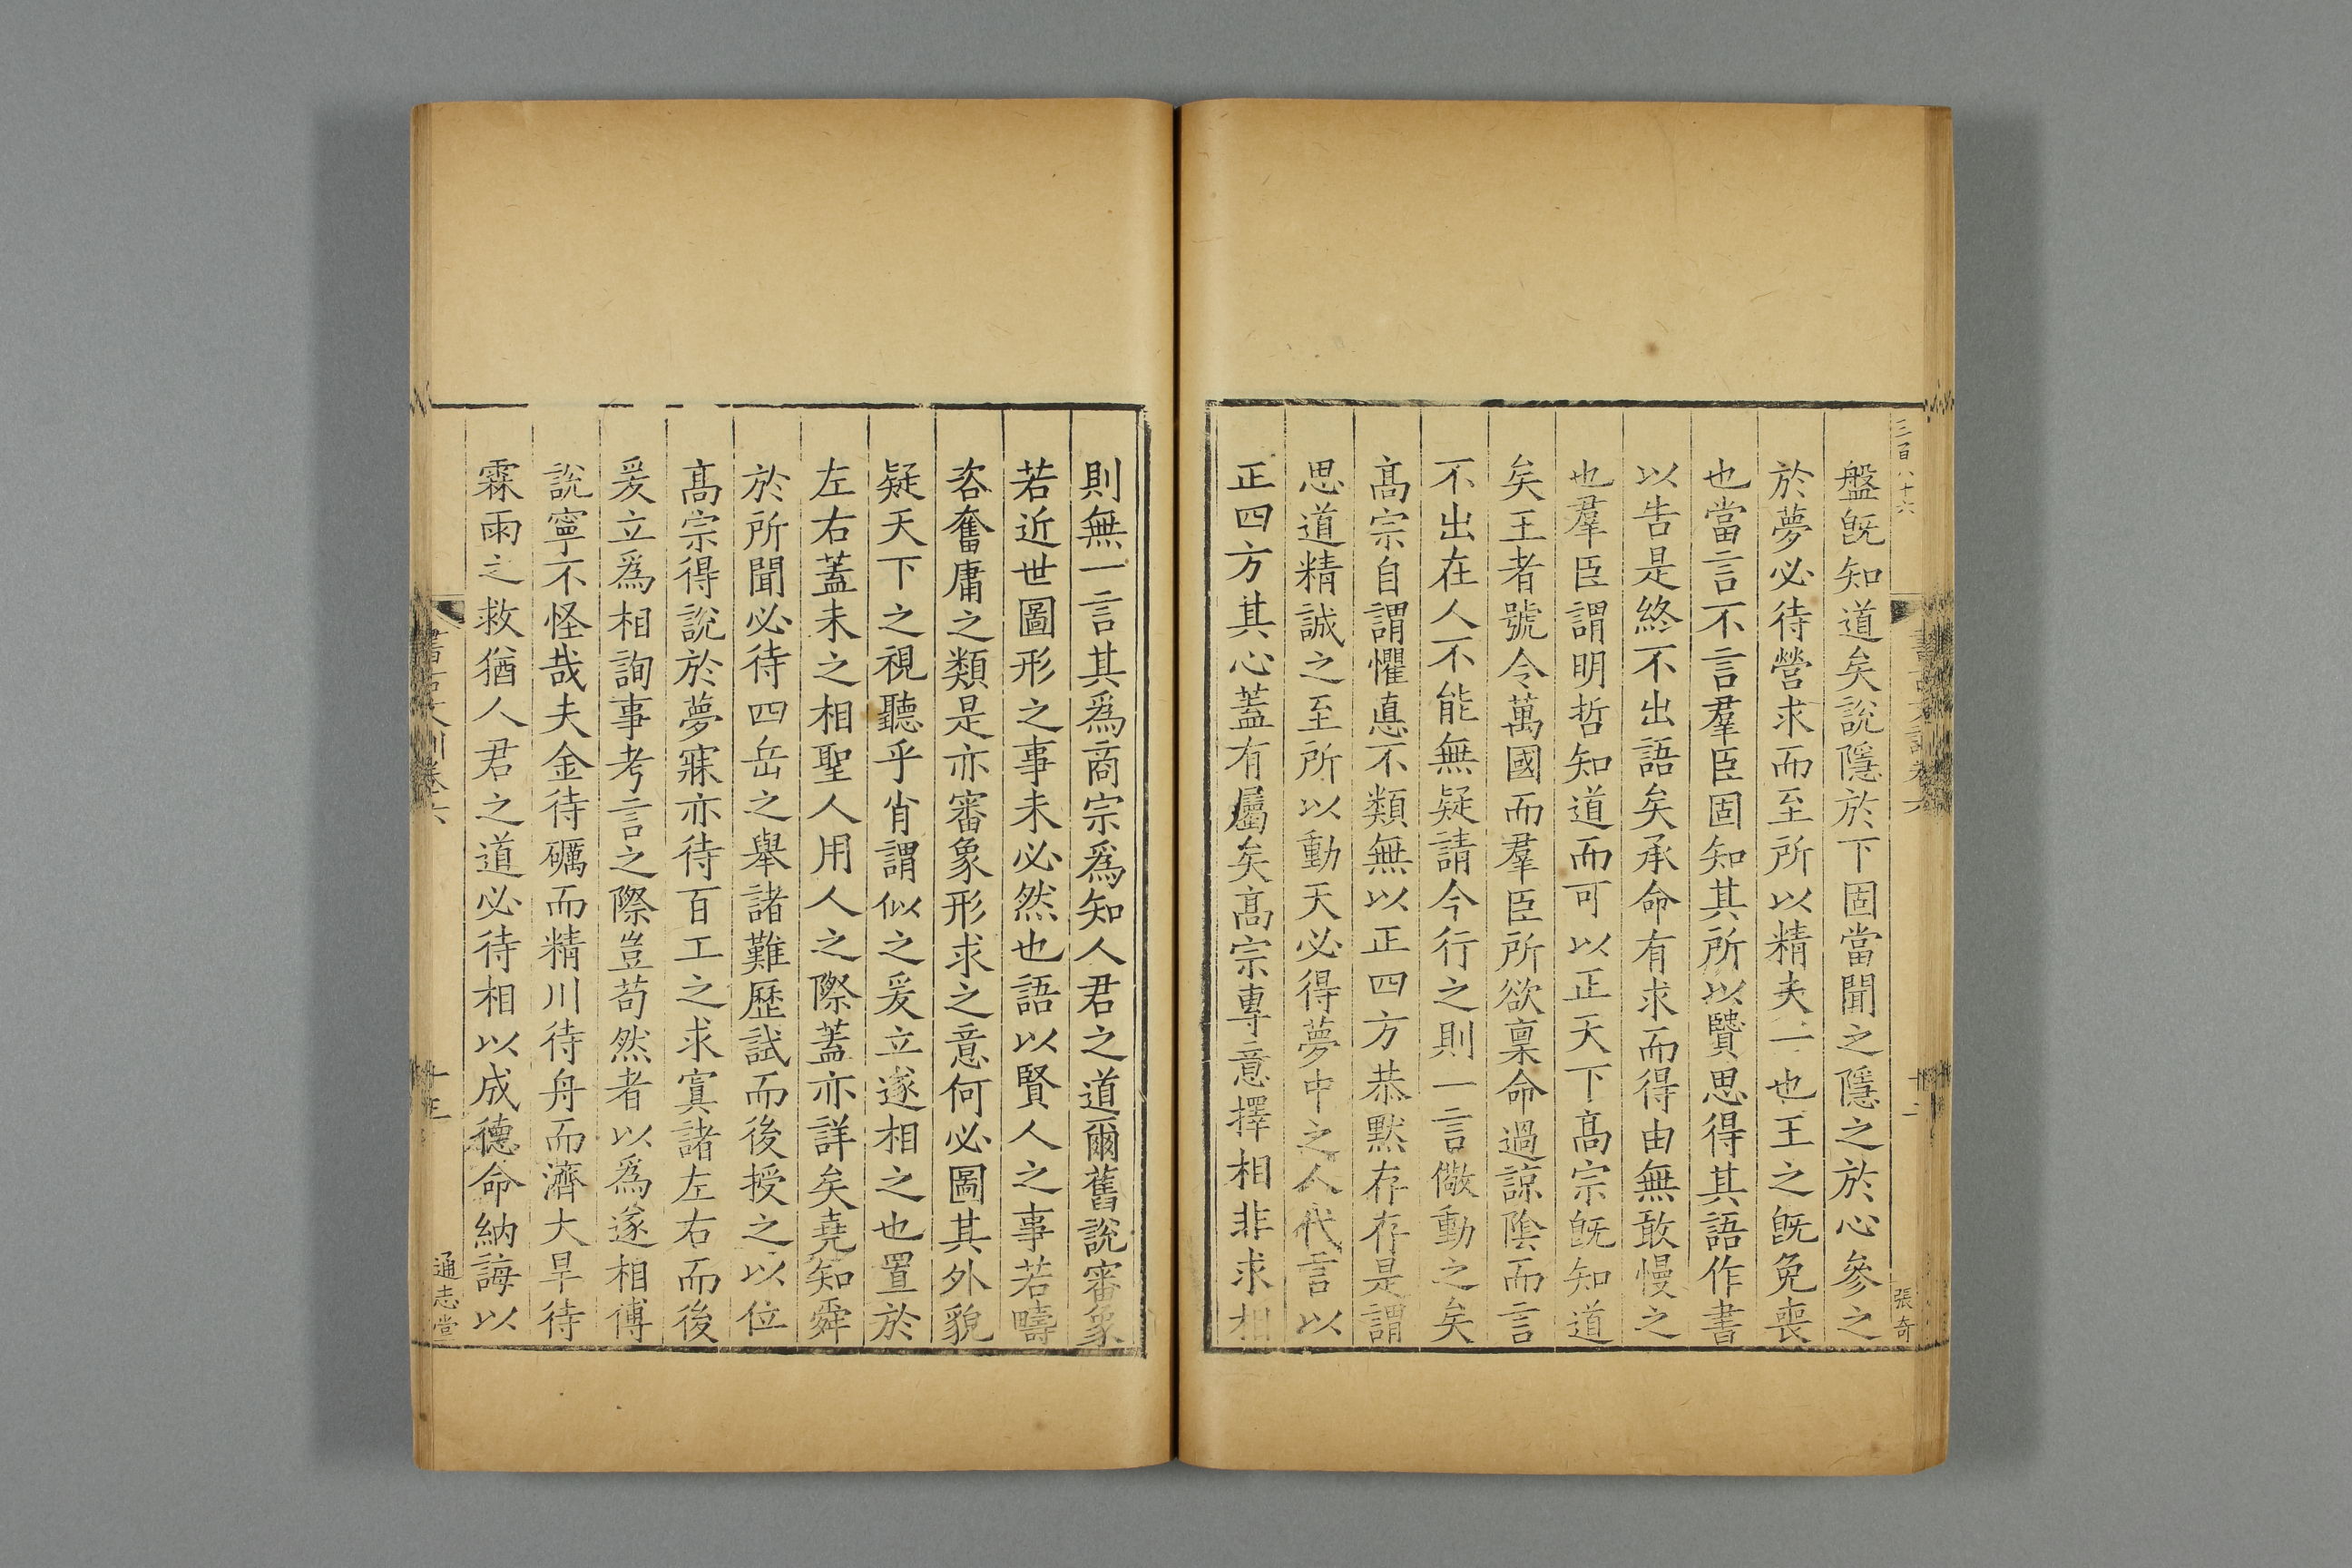 三百八十六
盤旣知道矣說隱於下固當聞之隱之於心參之
於夢必待營求而至所以精夫一也王之旣免喪
也當言不言羣臣固知其所以贒思得其語作書
以告是終不出語矣承命有求而得由無敢慢之
也羣臣謂明哲知道而可以正天下髙宗旣知道
矣王者號令萬國而羣臣所欲稟命過諒陰而言
不出在人不能無疑請今行之則一言儆動之矣
髙宗自謂懼悳不類無以正四方恭默存存是謂
思道精誠之至所以動天必得夢中之人代言以
正四方其心蓋有屬矣髙宗專意擇相非求相
張奇
則無一言其爲商宗爲知人君之道爾舊說審象
若近世圖形之事未必然也語以賢人之事若疇
咨奮庸之類是亦審象形求之意何必圖其外貌
疑天下之視聽乎肖謂似之爰立遂相之也置於
左右蓋未之相聖人用人之際蓋亦詳矣堯知舜
於所聞必待四岳之舉諸難歷試而後授之以位
髙宗得說於夢寐亦待百工之求寘諸左右而後
爰立爲相詢事考言之際豈苟然者以爲遂相傅
說寧不怪哉夫金待礪而精川待舟而濟大旱待
霖雨之救猶人君之道必待相以成德命納誨以
卷六
十三
通志堂